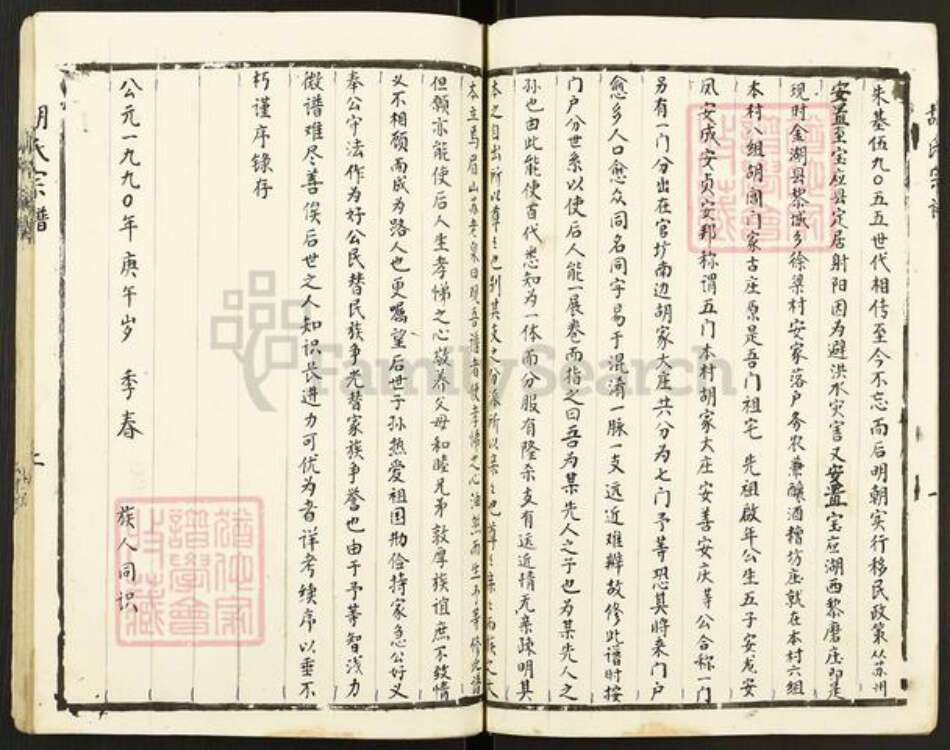 胡氏宗谱
一
朱基伍九〇五五世代相传至今不忘而后明朝实行移民政策从苏州
安置至宝应县定居射阳因为避洪水灾害又安置宝应湖西黎磨庄即是
现时金湖县黎城乡徐梁村安家落户务农兼酿酒糟坊庄就在本村六组
本村八组胡闸门家古庄原是吾门祖宅 先祖啟年公生五子安龙安
凤安成安贞安邦称谓五门本村胡家大庄安善安庆等公合称一门
另有一门分出在官圩南边胡家大庄共六分为七门予等恐其将来门户
愈多人口愈众同名同字易于混淆一脉一支远近难辨故修此谱时按
门户分世系以使后人能一展卷而指之曰吾为某先人之子也为某先人之
孙也由此能使百代悉知为一体而分服有隆杀支有远近情无亲疎明其
本之自出所以尊之也别其支之分派所以亲之也尊之亲之而族之大
本立焉眉山苏老泉曰观吾谱者孝悌之心油然而生予等修此谱
但愿亦能使后人生孝悌之心敬养父母和睦兄弟敦厚族谊庶不致情
义不相顾而成为路人也更嘱望后世子孙热爱祖国勤俭持家急公好义
奉公守法作为好公民替民族争光替家族争誉也由于予等智浅力
微谱难尽善俟后世之人知识长进力可优为者详考续序以垂不
朽谨序录存
公元一九九〇年庚午岁 季春 族人同识
胡氏宗谱
二
FamilySearch